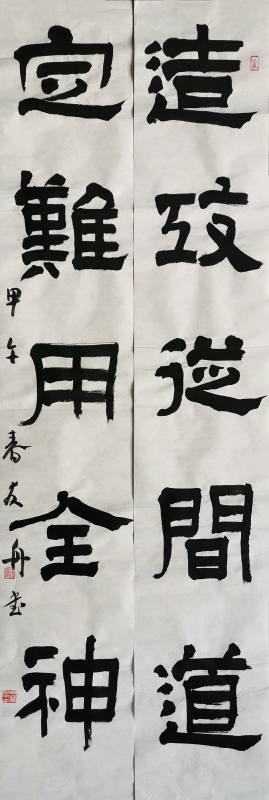 造攻從間道
定難用全神
甲午春友舟書